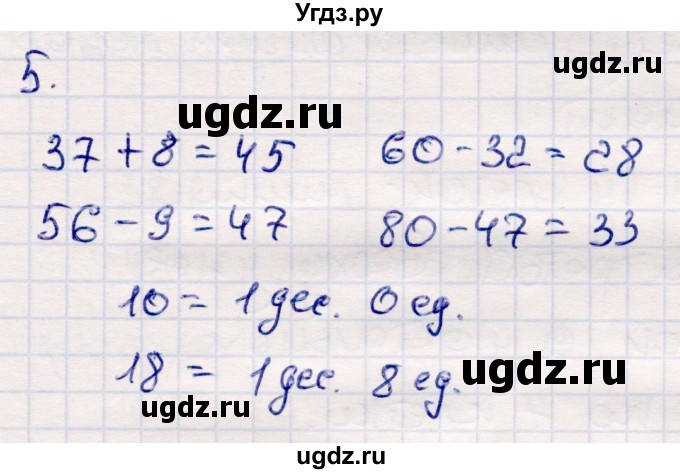 Угдз.ру
5.
ugdz.ru
37 + 8 = 45 60 - 32 = 28
56 - 9 = 47 80 - 47 = 33
10 = 1 дес. 0 ед.
18 = 1 дес. 8 ед.
ugdz.ru
ugdz.ru
ugdz.ru